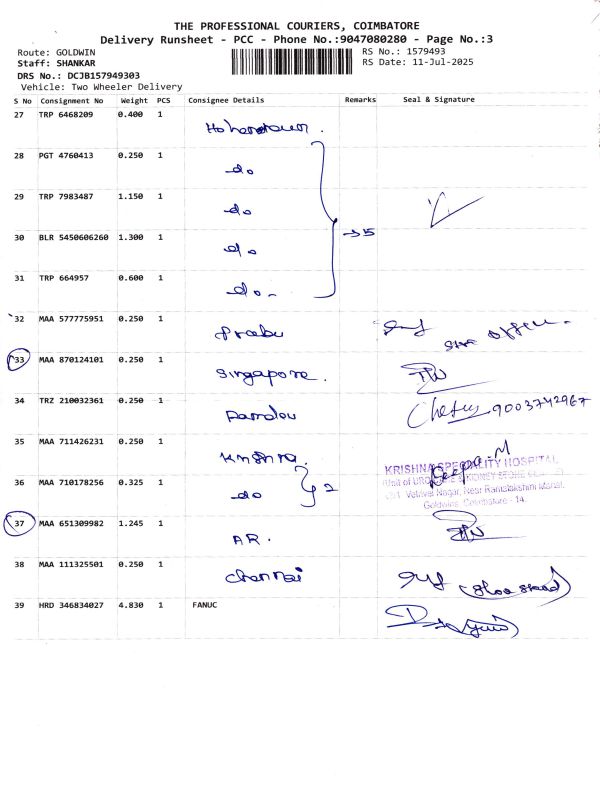 THE PROFESSIONAL COURIERS, COIMBATORE
Delivery Runsheet - PCC - Phone No.:9047080280 - Page No.:3
Route: GOLDWIN RS No.: 1579493
Staff: SHANKAR RS Date: 11-Jul-2025
DRS No.: DCJB157949303
Vehicle: Two Wheeler Delivery
S No Consignment No Weight PCS Consignee Details Remarks Seal & Signature
27 TRP 6468209 0.400 1
28 PGT 4760413 0.250 1 do
29 TRP 7983487 1.150 1 do
30 BLR 5450606260 1.300 1 do →5
31 TRP 664957 0.600 1 do-
32 MAA 577775951 0.250 1 Prabu
33 MAA 870124101 0.250 1 Singapore.
34 TRZ 210032361 0.250 1 9003742967
35 MAA 711426231 0.250 1 Krishna Deepa.M
KRISHNA SPECIALITY HOSPITAL
36 MAA 710178256 0.325 1 do } 2
Goldwins, Coimbatore - 14.
37 MAA 651309982 1.245 1 AR.
38 MAA 111325501 0.250 1 chennai
39 HRD 346834027 4.830 1 FANUC